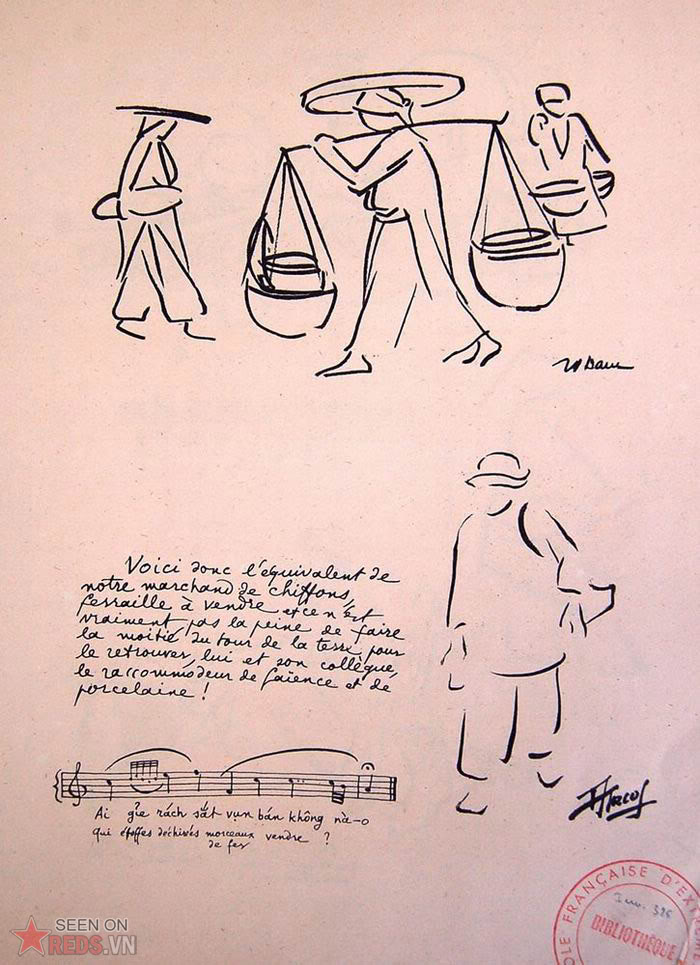 Voici donc l'équivalent de
notre marchand de chiffons,
ferraille à vendre et ce n'est
vraiment pas la peine de faire
la moitié du tour de la terre pour
le retrouver, lui et son collègue,
le raccommodeur de faïence et de
porcelaine !
Ai gie rách sắt vụn bán không nà-o
qui étoffes déchirés morceaux vendre ?
de fer
ÉCOLE FRANÇAISE D'EXTR
Inv. 326
BIBLIOTHÈQUE
SEEN ON
REDS.VN